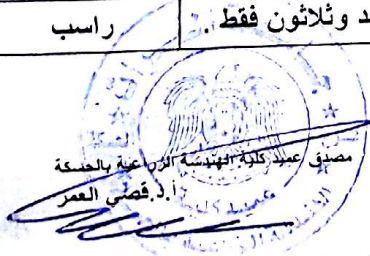 د وثلاثون فقط . راسب
مصدق عميد كلية الهندسة الزراعية بالحسكة
أ.د.قصي العمر